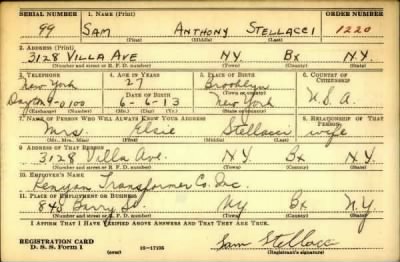 SERIAL NUMBER 1. NAME (Print) ORDER NUMBER
99 SAM ANTHONY STELLACCI 1220
(First) (Middle) (Last)
2. ADDRESS (Print)
3128 VILLA AVE N.Y. Bx N.Y.
(Number and street or R. F. D. number) (Town) (County) (State)
3. TELEPHONE 4. AGE IN YEARS 5. PLACE OF BIRTH 6. COUNTRY OF CITIZENSHIP
New York 27 Brooklyn
DATE OF BIRTH (Town or county)
Dayton 9-0100 6-6-13 New York U.S.A.
(Exchange) (Number) (Mo.) (Day) (Yr.) (State or country)
7. NAME OF PERSON WHO WILL ALWAYS KNOW YOUR ADDRESS 8. RELATIONSHIP OF THAT PERSON
Mrs. Elsie Stellacci wife
(Mr., Mrs., Miss) (First) (Middle) (Last)
9. ADDRESS OF THAT PERSON
3128 Villa Ave. N.Y. Bx N.Y.
(Number and street or R. F. D. number) (Town) (County) (State)
10. EMPLOYER'S NAME
Kenyon Transformer Co. Inc.
11. PLACE OF EMPLOYMENT OR BUSINESS
845 Barry St. NY Bx N.Y.
(Number and street or R. F. D. number) (Town) (County) (State)
I AFFIRM THAT I HAVE VERIFIED ABOVE ANSWERS AND THAT THEY ARE TRUE.
REGISTRATION CARD
D. S. S. Form 1 (over) 16-17105 Sam Stellacci
(Registrant's signature)